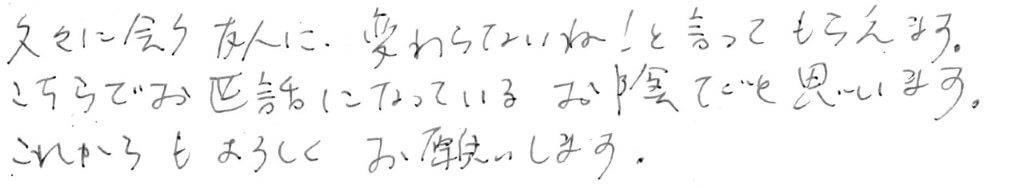 久々に会う友人に、変わらないね!と言ってもらえます。
こちらでお世話になっているお陰でと思います。
これからもよろしくお願いします。